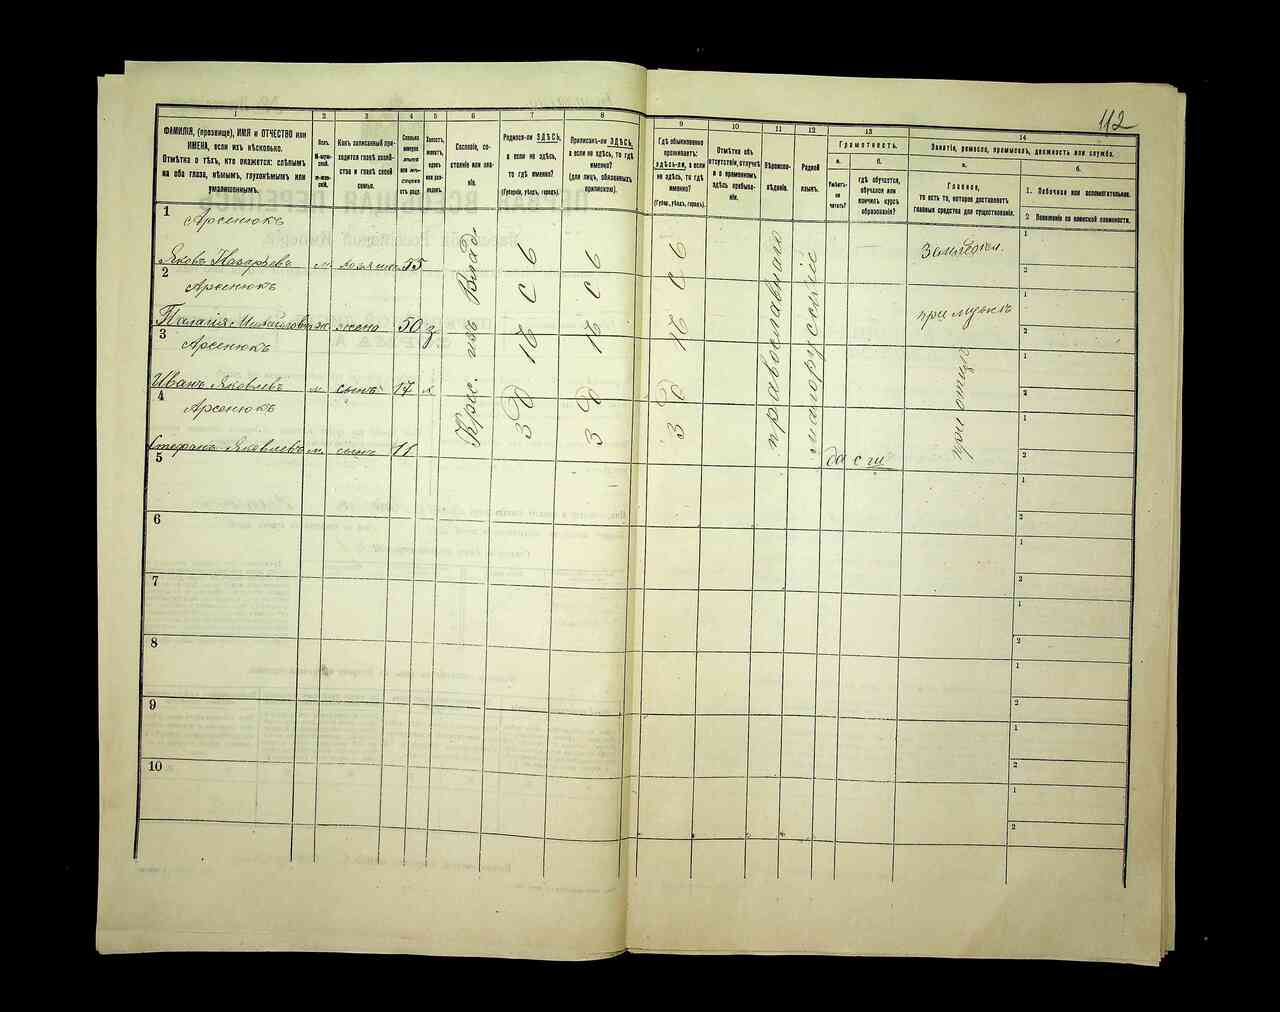 112
1 2 3 4 5 6 7 8 9 10 11 12 13 14
ФАМИЛІЯ, (прозвище), ИМЯ и ОТЧЕСТВО или
ИМЕНА, если ихъ нѣсколько.
Отмѣтка о тѣхъ, кто окажется: слѣпымъ
на оба глаза, нѣмымъ, глухонѣмымъ или
умалишеннымъ.
Полъ.
М-мужской.
Ж-женскій.
Какъ записанный приходится главѣ хозяйства и главѣ своей семьи.
Сословіе, состояніе или званіе.
Родился-ли ЗДѢСЬ,
а если не здѣсь,
то гдѣ именно?
(Губернія, уѣздъ, городъ).
Приписанъ-ли ЗДѢСЬ,
а если не здѣсь, то гдѣ
именно?
(для лицъ, обязанныхъ
припискою).
Гдѣ обыкновенно
проживаетъ:
здѣсь-ли, а если
не здѣсь, то гдѣ
именно?
(Губер., уѣздъ, городъ).
Отмѣтка объ
отсутствіи, отлучкѣ
и о временномъ
здѣсь пребываніи.
Вѣроисповѣданіе.
Родной
языкъ.
Грамотность.
а. б.
Умѣетъ-ли
читать?
гдѣ обучается,
обучался или
кончилъ курсъ
образованія?
Занятіе, ремесло, промыселъ, должность или служба.
а. б.
Главное,
то есть то, которое доставляетъ
главныя средства для существованія.
1. Побочное или вспомогательное.
2 Положеніе по воинской повинности.
1 Арсенюкъ
Яковъ Назарьевъ м. хозяинъ 55
Земледѣл.
2 Арсенюкъ
Палагія Михайлова ж жена 50 з
при мужѣ
3 Арсенюкъ
Иванъ Яковлевъ м. сынъ 17 х
4 Арсенюкъ
Стефанъ Яковлевъ м. сынъ 11
Крес. изъ Влад
ЗДѢСЬ
ЗДѢСЬ
ЗДѢСЬ
православнаго
малорусскій
при отцѣ
5
6
7
8
9
10